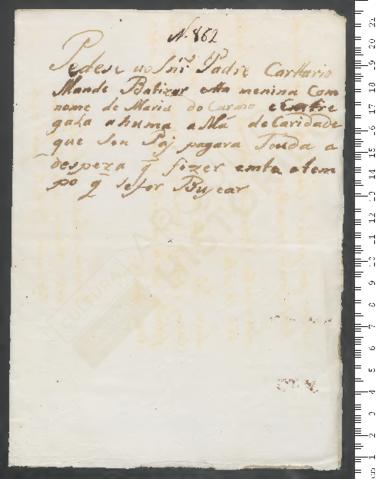 N. 862
Pedese ao Snr. Padre Carttario
Mande Batizar esta menina Com
nome de Maria do Carmo e Entre
gala a huma a Má de Caridade
que Seu Paj pagara Touda a
despeza q fizer emta o tem
po q se for Buscar